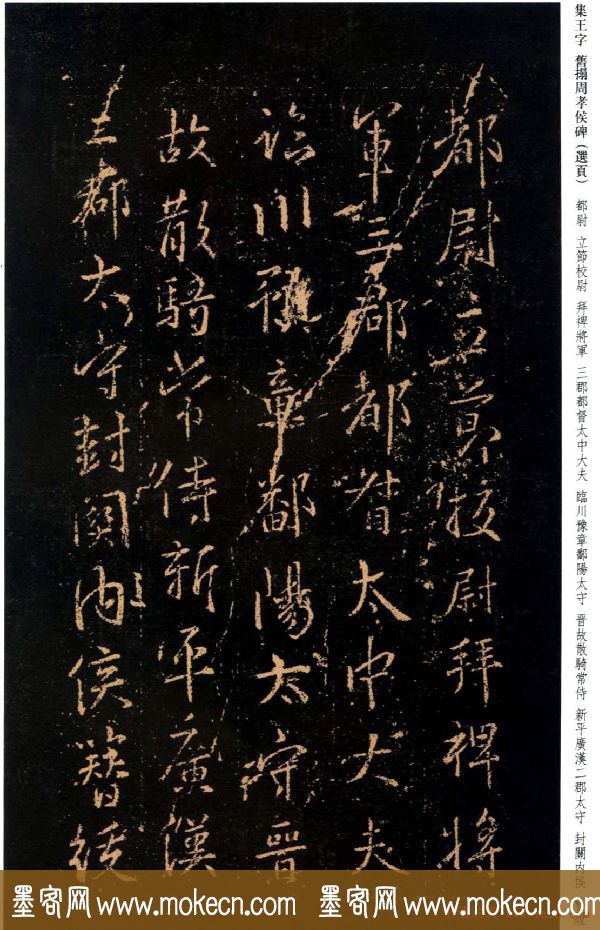 集王字 舊搨周孝侯碑（選頁） 都尉 立節校尉 拜裨將軍 三郡都督太中大夫 臨川豫章鄱陽太守 晉故散騎常侍 新平廣漢二郡太守 封關內侯
都尉立節校尉拜裨將
軍三郡都督太中大夫
臨川豫章鄱陽太守晉
故散騎常侍新平廣漢
二郡太守封關內侯簪紱
墨客网 www.mokecn.com 墨客网 www.mokecn.com